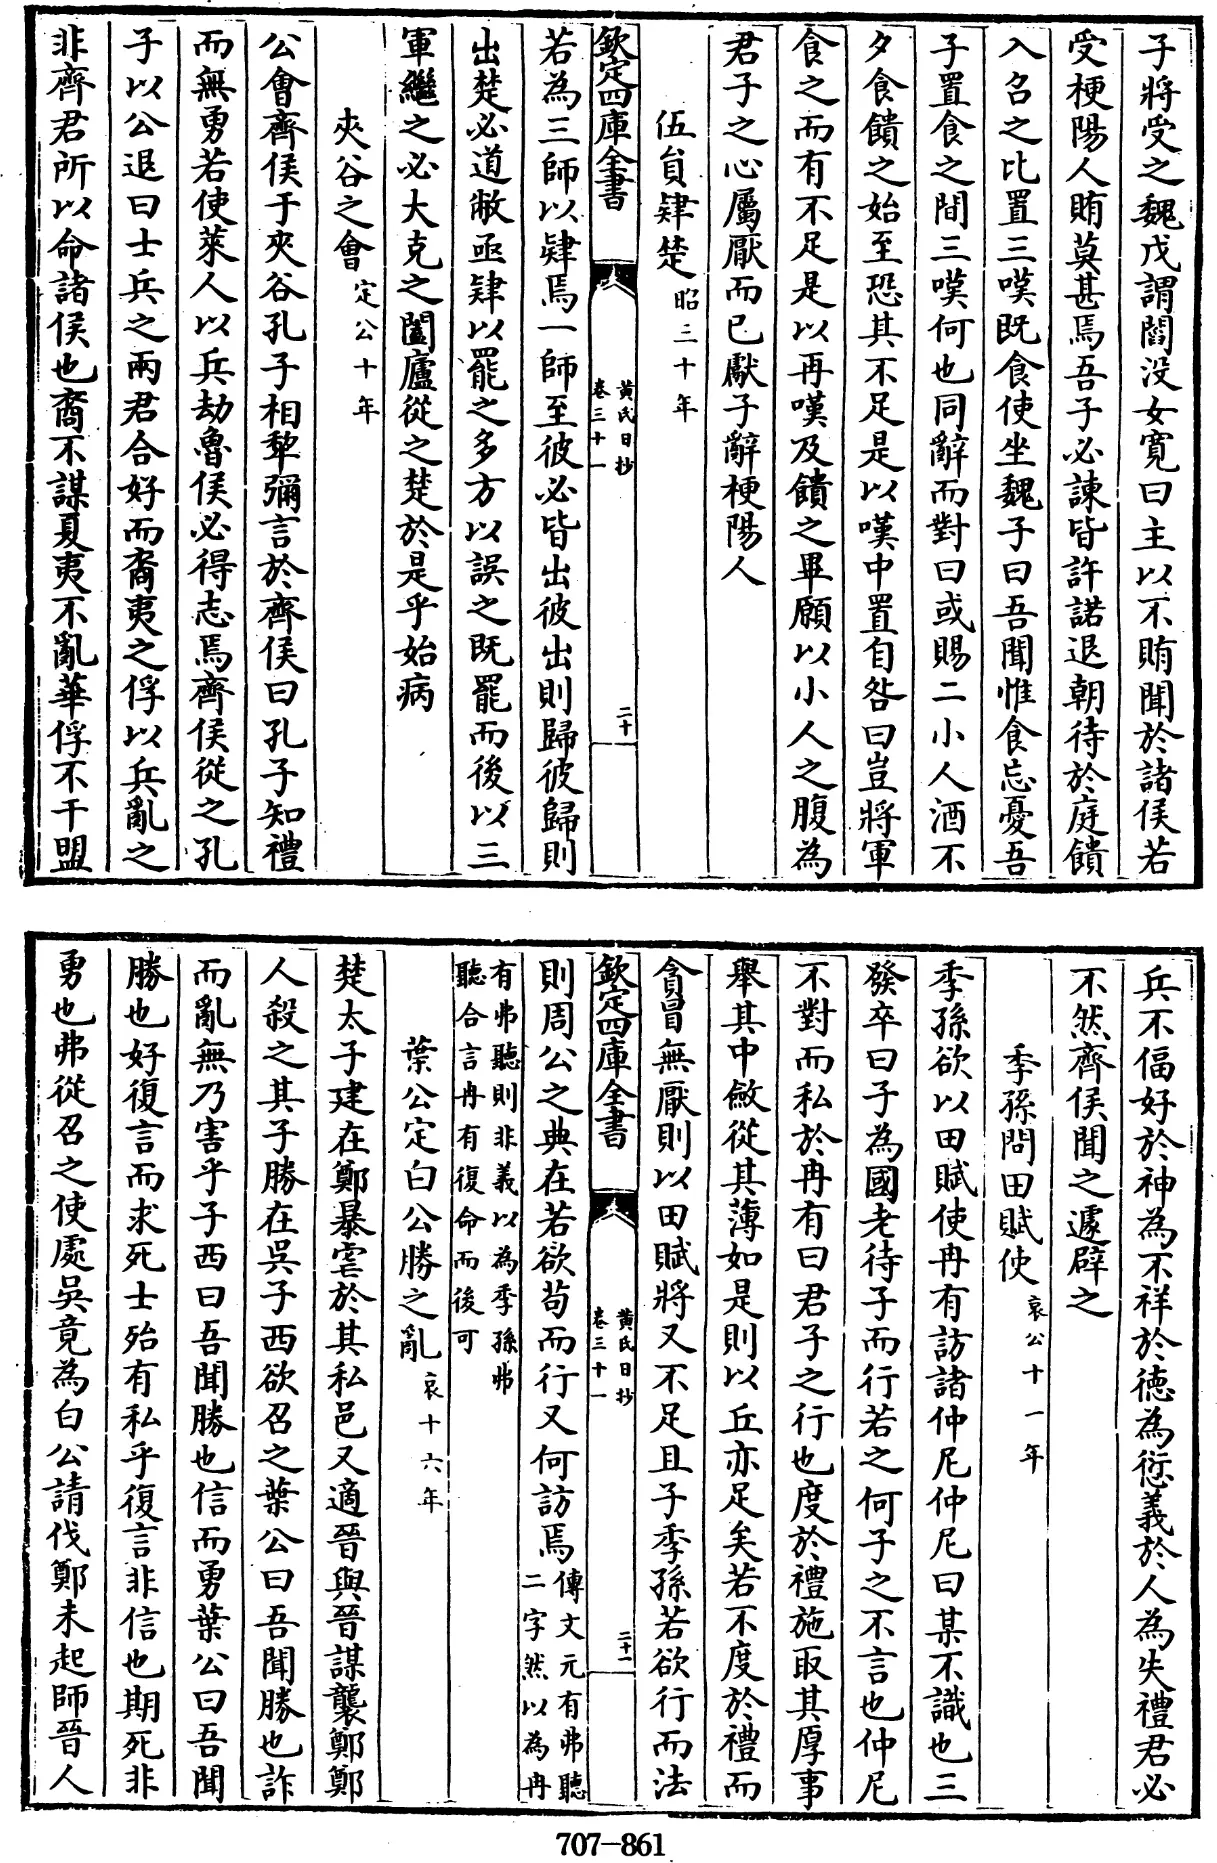 子將受之魏戊謂閻没女寛曰主以不賄聞於諸侯若
受梗陽人賄莫甚焉吾子必諫皆許諾退朝待於庭饋
入召之比置三嘆既食使坐魏子曰吾聞惟食忘憂吾
子置食之間三嘆何也同辭而對曰或賜二小人酒不
夕食饋之始至恐其不足是以嘆中置自咎曰豈將軍
食之而有不足是以再嘆及饋之畢願以小人之腹為
君子之心屬厭而已獻子辭梗陽人
伍員肄楚昭三十年
欽定四庫全書
黄氏日抄
卷三十一
二十
若為三師以肄焉一師至彼必皆出彼出則歸彼歸則
出楚必道敝亟肄以罷之多方以誤之既罷而後以三
軍繼之必大克之闔廬從之楚於是乎始病
夾谷之會定公十年
公會齊侯于夾谷孔子相犂彌言於齊侯曰孔子知禮
而無勇若使萊人以兵劫魯侯必得志焉齊侯從之孔
子以公退曰士兵之兩君合好而裔夷之俘以兵亂之
非齊君所以命諸侯也裔不謀夏夷不亂華俘不干盟
兵不偪好於神為不祥於徳為愆義於人為失禮君必
不然齊侯聞之遽辟之
季孫問田賦使哀公十一年
季孫欲以田賦使冉有訪諸仲尼仲尼曰某不識也三
發卒曰子為國老待子而行若之何子之不言也仲尼
不對而私於冉有曰君子之行也度於禮施取其厚事
舉其中斂從其薄如是則以丘亦足矣若不度於禮而
貪冒無厭則以田賦將又不足且子季孫若欲行而法
欽定四庫全書
黄氏日抄
卷三十一
二十一
則周公之典在若欲苟而行又何訪焉傳文元有弗聽
二字然以為冉
有弗聽則非義以為季孫弗
聽合言冉有復命而後可
葉公定白公勝之亂哀十六年
楚太子建在鄭暴虐於其私邑又適晉與晉謀襲鄭鄭
人殺之其子勝在吳子西欲召之葉公曰吾聞勝也詐
而亂無乃害乎子西曰吾聞勝也信而勇葉公曰吾聞
勝也好復言而求死士殆有私乎復言非信也期死非
勇也弗從召之使處吳竟為白公請伐鄭未起師晉人
707-861